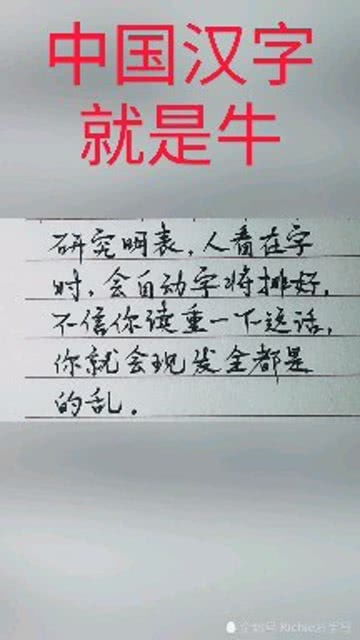 中国汉字
就是牛
研究明表，人看在字
时，会自动字将排好，
不信你读重一下这话，
你就会现发全都是
的乱。
企鹅号 Richie